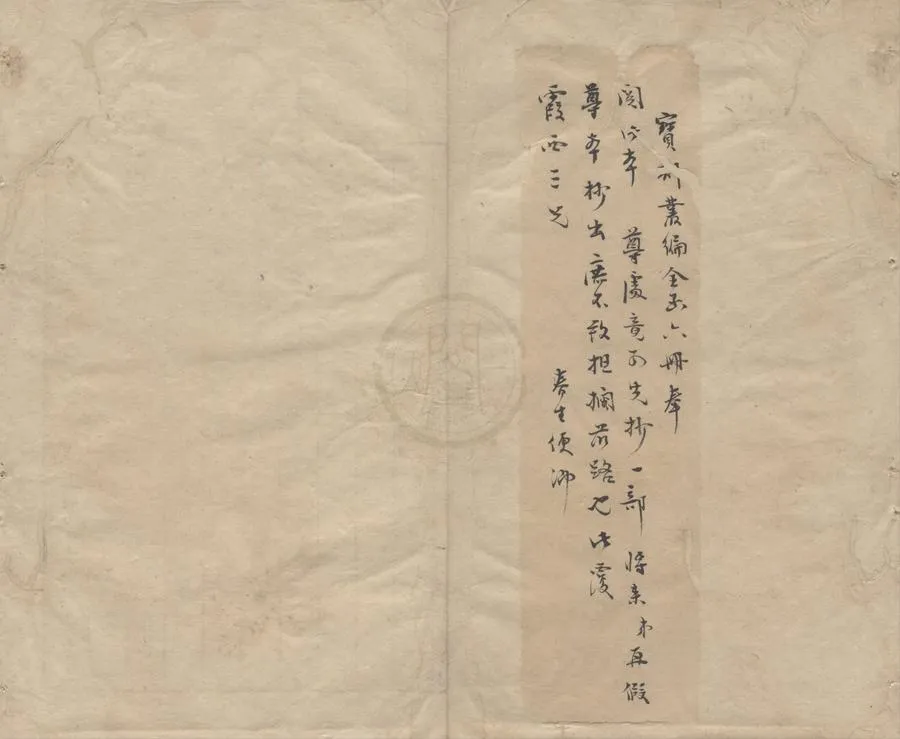 寶刻叢編全函六冊奉
閱此本 尊處竟可先抄一部 將來弟再假
尊本抄出庶不致担擱前路也此覆
霞西三兄
春生便